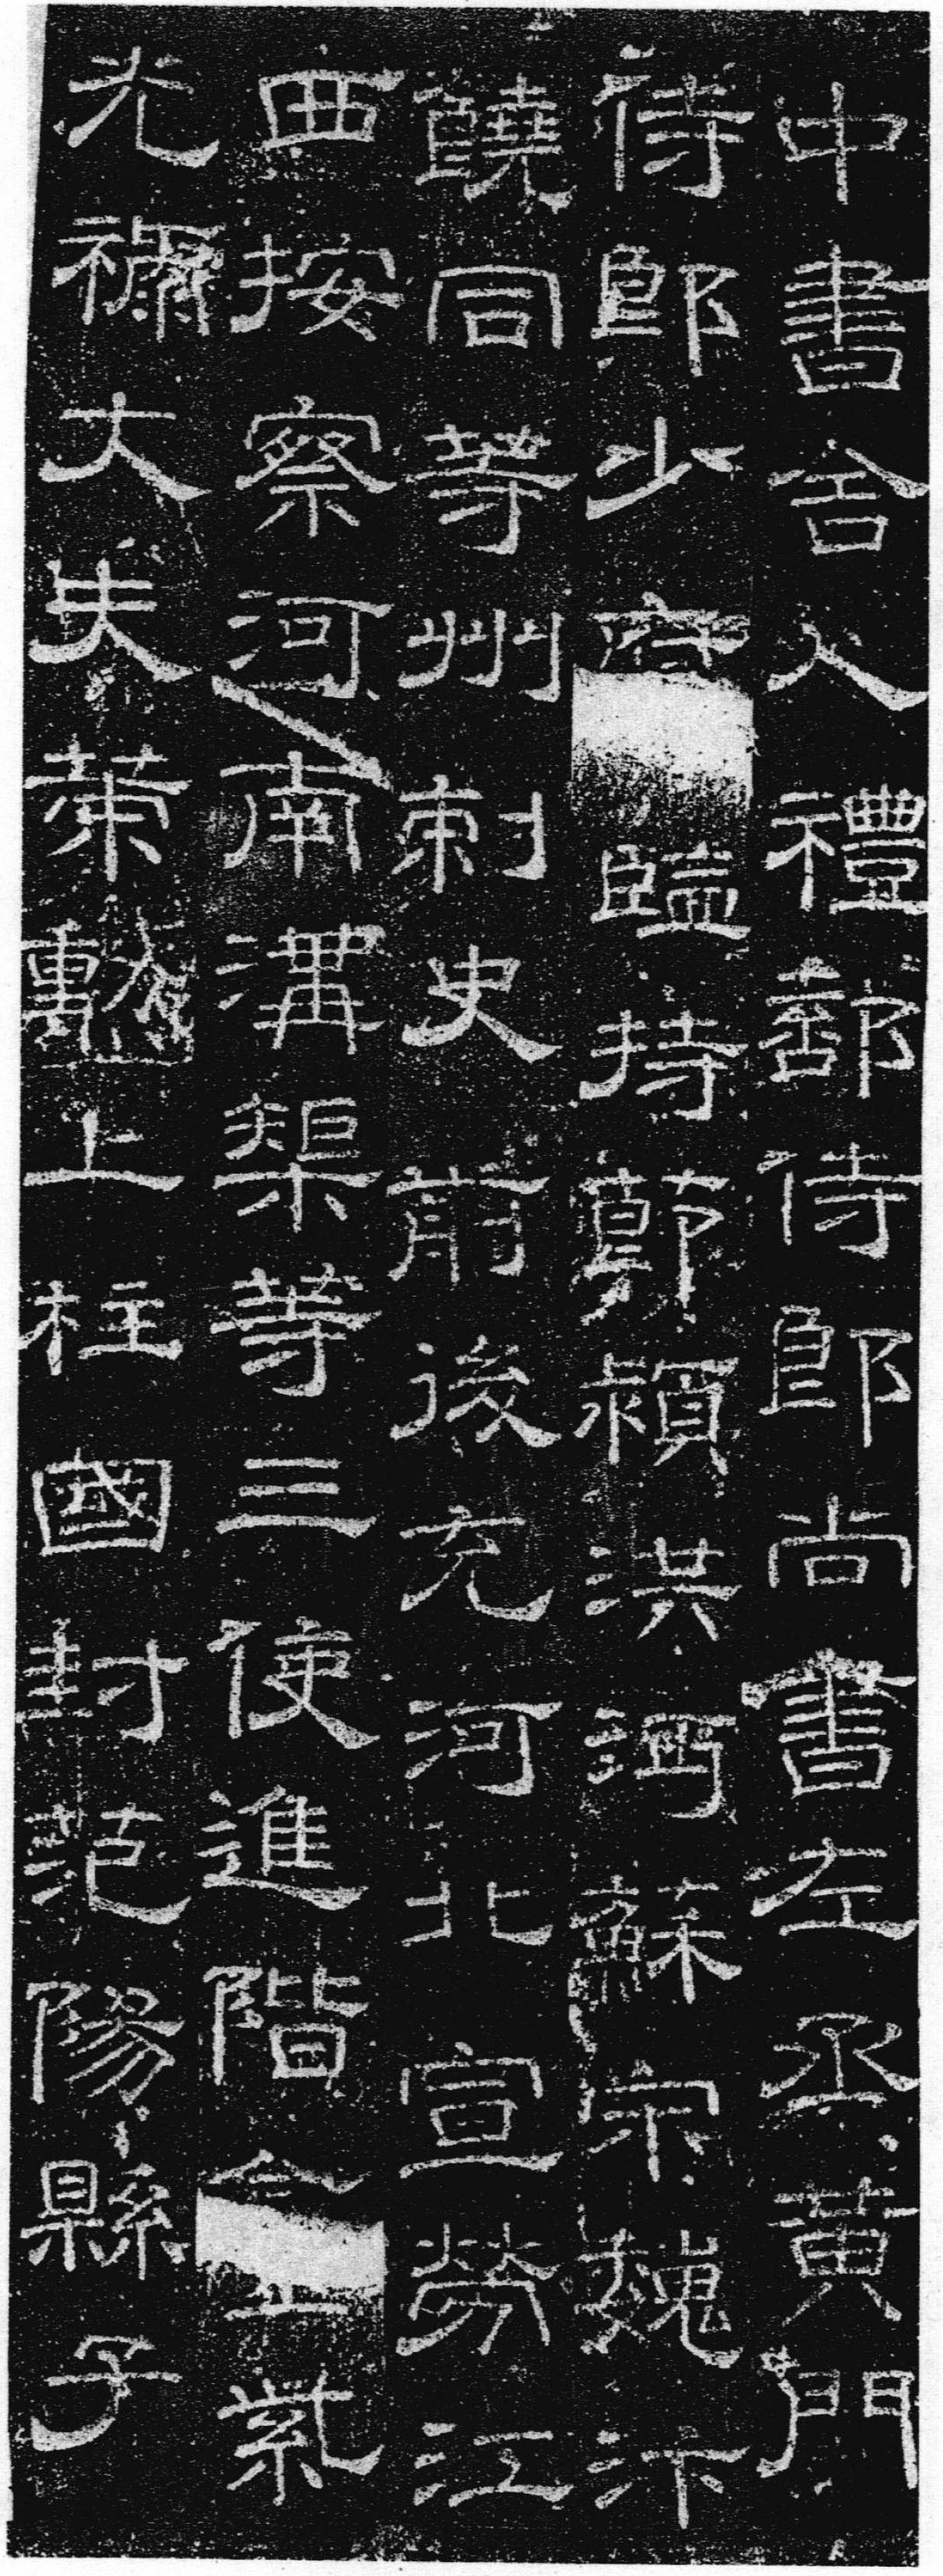 中書舍人禮部侍郎尚書左丞黃門
侍郎少府監持節潁洪沔蘇宋魏汴
饒同等州刺史前後充河北宣勞江
西按察河南溝渠等三使進階金紫
光祿大夫策勳上柱國封范陽縣子